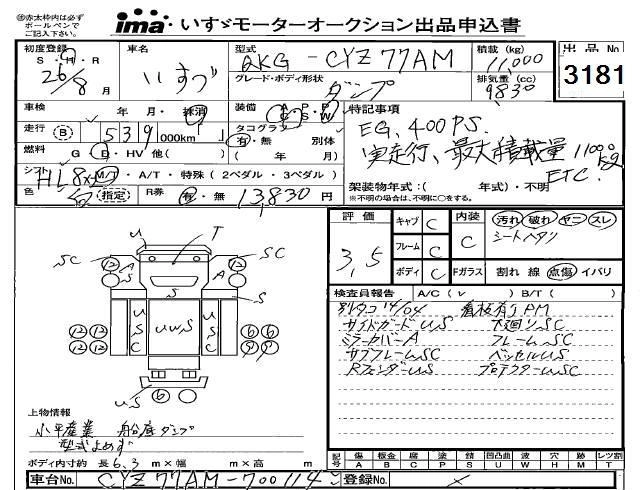 ※赤太枠内は必ず
ボールペンで
ご記入下さい。
ima いすゞモーターオークション出品申込書
初度登録 S・H・R 26/8月
車名 いすゞ
型式 QKG-CYZ77AM
積載 (kg) 11,000
出品No 3181
グレード・ボディ形状 ダンプ
排気量 (cc) 9830
車検 年・月・抹消
装備 A C P S P W
特記事項
走行 (B) 539,000km
タコグラフ 有・無 別体
EG, 400PS.
燃料 G D・HV 他( )
( 年 月)
実走行、最大積載量 11000kg
シフト HL8xM/T・A/T・特殊 (2ペダル・3ペダル)
ETC.
色 白 (指定) R券 有・無 13830円
架装物年式:( 年式)・不明
※不明の場合は、不明に○をする。
評価 3.5
キャブ C
フレーム C
ボディ C
内装 C
汚れ 破れ ヤニ スレ
シートヘタリ
Fガラス 割れ 線 点傷 イバリ
検査員報告 A/C ( ∨ ) B/T ( )
別タコ 14/04 看板有り PM
サイドガード US 下廻り SC
ミラーカバー A フレーム SC
サブフレーム SC ベッセル US
Rフェンダー US プロテクター SC
U T
SC A S A SC
S
12 12
U S C UWS U S C
12 12 6 6
12 12 9 9
US 6
上物情報
小平産業 船底ダンプ
型式よめず
ボディ内寸約 長 6.3 m×幅 m×高 m
記号 傷 A 板金 B 腐食 C 塗 P 錆 S 凹凸曲 U 波 W 穴 H 欠 M レツ割 T
車台No. CYZ77AM-7001142
登録No. ×